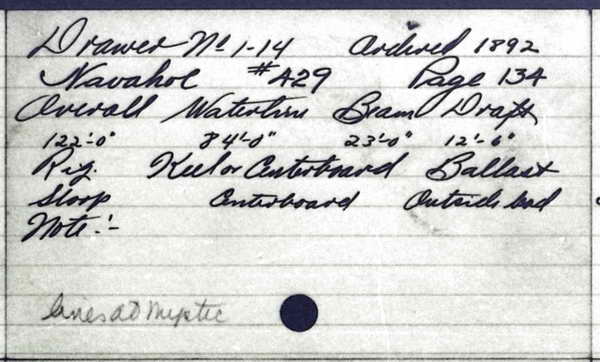 Drawer No 1-14 Ordered 1892
Navahoe #429 Page 134
Overall Waterline Beam Draft
122'-0" 84'-0" 23'-0" 12'-6"
Rig. Keel or Centerboard Ballast
Sloop Centerboard Outside lead
Note:-
Lines at Mystic